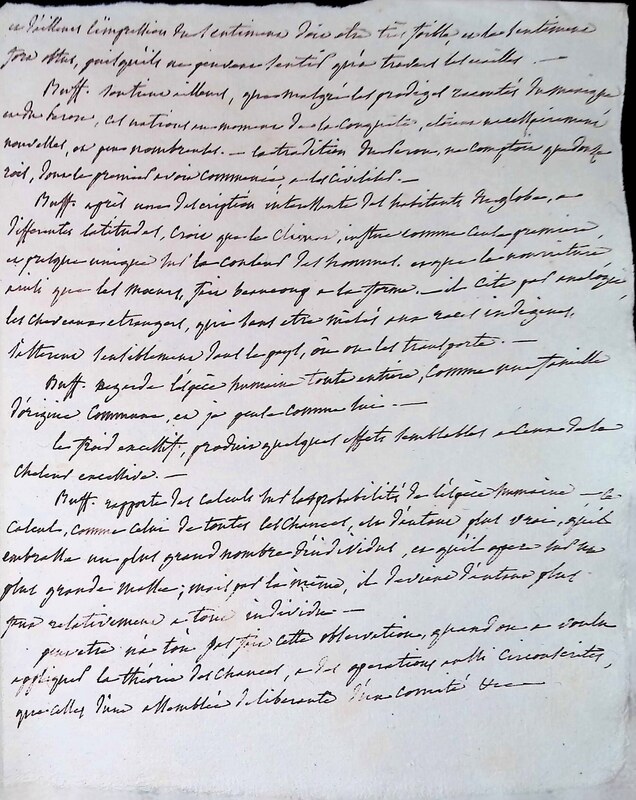 et d'ailleurs l'impression du sentiment doit etre très foible, et le sentiment
fort obtus, puisqu'ils ne peuvent sentir qu'a travers les ecailles. —
Buff. soutient ailleurs, que malgré les prodiges racontés du mexique
et du Perou, ces nations au moment de la conquête, etoient necessairement
nouvelles, et peu nombreuses. — la tradition du Perou, ne comptoit que douze
rois, dont le premier avoit commencé, a les civiliser. —
Buff. après une description interessante des habitants du globe, a
differentes latitudes, croit que le climat, influe comme cause premiere,
et presque unique sur la couleur des hommes. et que la nourriture
ainsi que les moeurs, fait beaucoup a la forme. — il cite par analogie,
les chevaux etrangers, qui sans etre mêlés aux races indigenes,
s'alterent sensiblement dans le pays, où on les transporte. —
Buff. regarde l'espèce humaine toute entiere, comme une famille
d'origine commune, et je pense comme lui —
le froid excessif, produit quelques effets semblables a ceux de la
chaleur excessive. —
Buff. rapporte des calculs sur les probabilités de l'espèce humaine — ce
calcul, comme celui de toutes les chances, est d'autant plus vrai, qu'il
embrasse un plus grand nombre d'individus, et qu'il opere sur une
plus grande masse; mais par là même, il devient d'autant plus
faux relativement a tout individu —
peutetre n'a t'on pas fait cette observation, quand on a voulu
appliquer la théorie des chances, a des operations aussi circonscrites,
que celles d'une assemblée deliberante d'un comité &c —